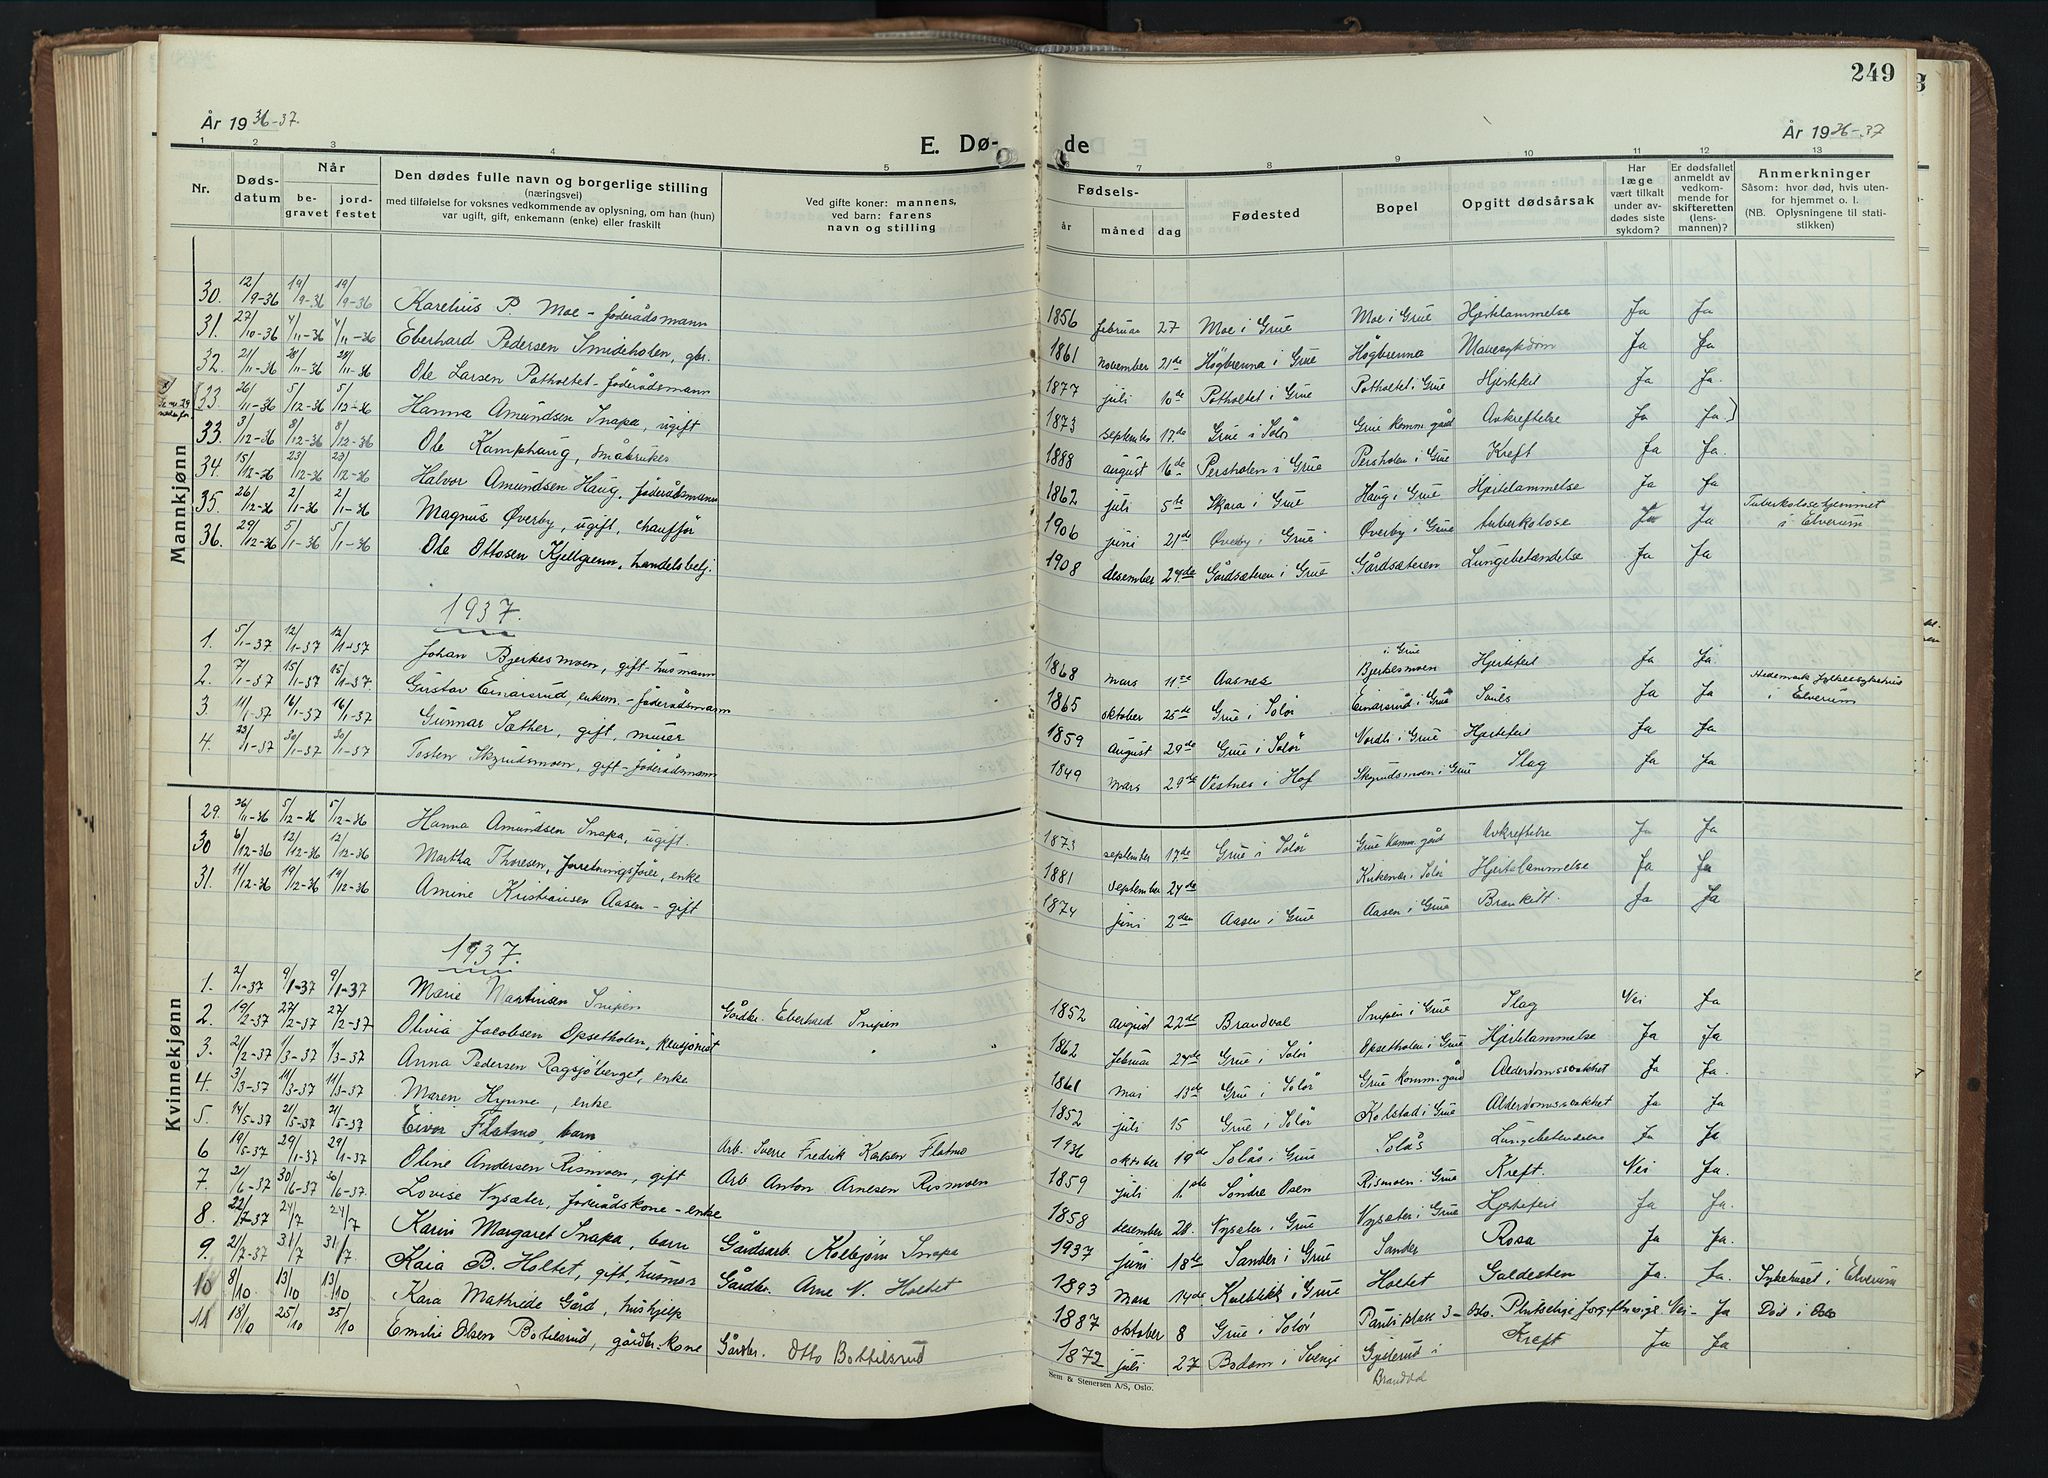 249
År 1936-37.
E. Dø-
de
År 1936-37
1 2 3 4 5 6 7 8 9 10 11 12 13
Nr.
Døds-
datum
Når
be-
gravet
jord-
festet
Den dødes fulle navn og borgerlige stilling
(næringsvei)
med tilføielse for voksnes vedkommende av oplysning, om han (hun)
var ugift, gift, enkemann (enke) eller fraskilt
Ved gifte koner: mannens,
ved barn: farens
navn og stilling
Fødsels-
år måned dag
Fødested
Bopel
Opgitt dødsårsak
Har
læge
vært tilkalt
under av-
dødes siste
sykdom?
Er dødsfallet
anmeldt av
vedkom-
mende for
skifteretten
(lens-
mannen)?
Anmerkninger
Såsom: hvor død, hvis uten-
for hjemmet o. l.
(NB. Oplysningene til stati-
stikken)
Mannkjønn
30. 12/9-36 19/9-36 19/9-36 Karelius P. Moe - føderådsmann 1856 februar 27 Moe i Grue Moe i Grue Hjertelammelse Ja Ja
31. 27/10-36 4/11-36 4/11-36 Eberhard Pedersen Smideholen, gbr. 1861 november 21de Högbrenna i Grue Högbrenna Mavesykdom Ja Ja
32. 21/11-36 28/11-36 28/11-36 Ole Larsen Potholtet - føderådsmann 1877 juli 10de Potholtet i Grue Potholtet i Grue Hjertefeil Ja Ja.
33 26/11-36 5/12-36 5/12-36 Hanna Amundsen Snapa, ugift 1873 september 17.de Grue i Solør Grue komm. gård Avkreftelse Ja Ja.)
33. 3/12-36 8/12-36 8/12-36 Ole Kamphaug, småbruker 1888 august 16de Persholen i Grue Persholen i Grue Kreft Ja Ja.
34. 15/12-36 23/12-36 23/12-36 Halvor Amundsen Haug, føderådsmann 1862 juli 5te Skara i Grue Haug i Grue Hjertelammelse Ja Ja
35. 26/12-36 2/1-36 2/1-36 Magnus Øverby, ugift, chauffør 1906 juni 21de Øverby i Grue Øverby i Grue tuberkolose Ja Ja Tuberkolosehjemmet i Elverum
36. 29/12-36 5/1-36 5/1-36 Ole Ottosen Kjellgrenn, handelsbetj. 1908 desember 24.de Gårdsæteren i Grue Gårdsæteren Lungebetændelse Ja Ja
1937.
1. 5/1-37 12/1-37 12/1-37 Johan Bjerkesmoen, gift - husmann 1868 mars 11te Aasnes Bjerkesmoen i Grue Hjertefeil Ja Ja
2. 7/1-37 15/1-37 15/1-37. Gustav Einarsrud, enkem. - føderådsmann 1865 oktober 25de Grue i Solør Einarsrud i Grue Ja Ja Hedemark fylkessykehus i Elverum
3 11/1-37 16/1-37 16/1-37 Gunnar Sæther, gift, murer 1859 august 29de Grue i Solør Nordli i Grue Hjertefeil Ja Ja
4. 23/1-37 30/1-37 30/1-37 Tosten Skyrudsmoen, gift - føderådsmann 1849 mars 29de Vestnes i Hof Skyrudsmoen i Grue Slag Ja Ja
Kvinnekjønn
29. 26/11-36 5/12-36 5/12-36 Hanna Amundsen Snapa, ugift. 1873 september 17.de Grue i Solør Grue komm. gård Avkreftelse Ja Ja
30 6/12-36 12/12-36 12/12-36 Martha Thoresen, forretningsfører, enke 1881 september 24de Kirkenær i Solør Hjertelammelse Ja Ja
31. 14/12-36 19/12-36 19/12-36 Amine Kristiansen Aasen - gift 1874 juni 2den Aasen i Grue Aasen i Grue Bronkitt. Ja Ja
1937.
1. 2/1-37 9/1-37 9/1-37 Marie Martinsen Snipen Gårdbr. Eberhard Snipen 1852 august 22de Brandval Snipen i Grue Slag Nei Ja
2. 19/2-37 27/2-37 27/2-37 Olivia Jacobsen Opsetholen, pensjonist 1862 februar 24de Grue i Solør Opsetholen i Grue Hjertelammelse Ja Ja
3. 21/2-37 1/3-37 1/3-37 Anna Pedersen Ragsjøberget, enke 1861 mai 13de Grue i Solør Grue komm. gård Alderdomssvakhet Ja Ja.
4. 3/3-37 11/3-37 11/3-37 Maren Hynne, enke 1852 juli 15 Grue i Solør Kolstad i Grue Alderdomssvakhet Ja Ja
5. 14/5-37 21/5-37 21/5-37 Eivor Flatmo, barn Arb. Sverre Fredrik Karlsen Flatmo 1936 oktober 19de Solås i Grue Solås Lungebetendelse Ja Ja
6 19/5-37 29/1-37 29/1-37 Oline Andersen Rismoen, gift Arb Anton Arnesen Rismoen 1859 juli 1.ste Søndre Osen Rismoen i Grue Kreft. Nei Ja.
7. 21/6-37 30/6-37 30/6-37. Lovise Nysæter, føderådskone - enke 1858 desember 28. Nysæter i Grue Nysæter i Grue Hjertefeil Ja Ja.
8. 22/7-37 24/7 24/7 Karin Margaret Snapa, barn Gårdsarb. Kolbjørn Snapa 1937 juni 18de Sander i Grue Sander Rosa Ja Ja.
9. 21/7-37 31/7 31/7 Kaia B. Holtet, gift, husmor Gårdbr. Arne N. Holtet 1893 mars 14de Kulblikk i Grue Holtet Galdesten Ja. Ja. Sykehuset i Elverum
10 8/10 13/10 13/10 Kara Mathilde Gård, hushjelp 1887 oktober 8 Grue i Solør 3 - Oslo. Plutselige forgiftninge Nei - Ja Død i Oslo
11 18/10 25/10 25/10 Emilie Olsen Botilsrud, gårdbr. kone Gårdbr. Otto Bottilsrud 1872 juli 27 Bodam i Sverige Gjesterud i Brandval Kreft Ja Ja
Sem & Stenersen A/S, Oslo.